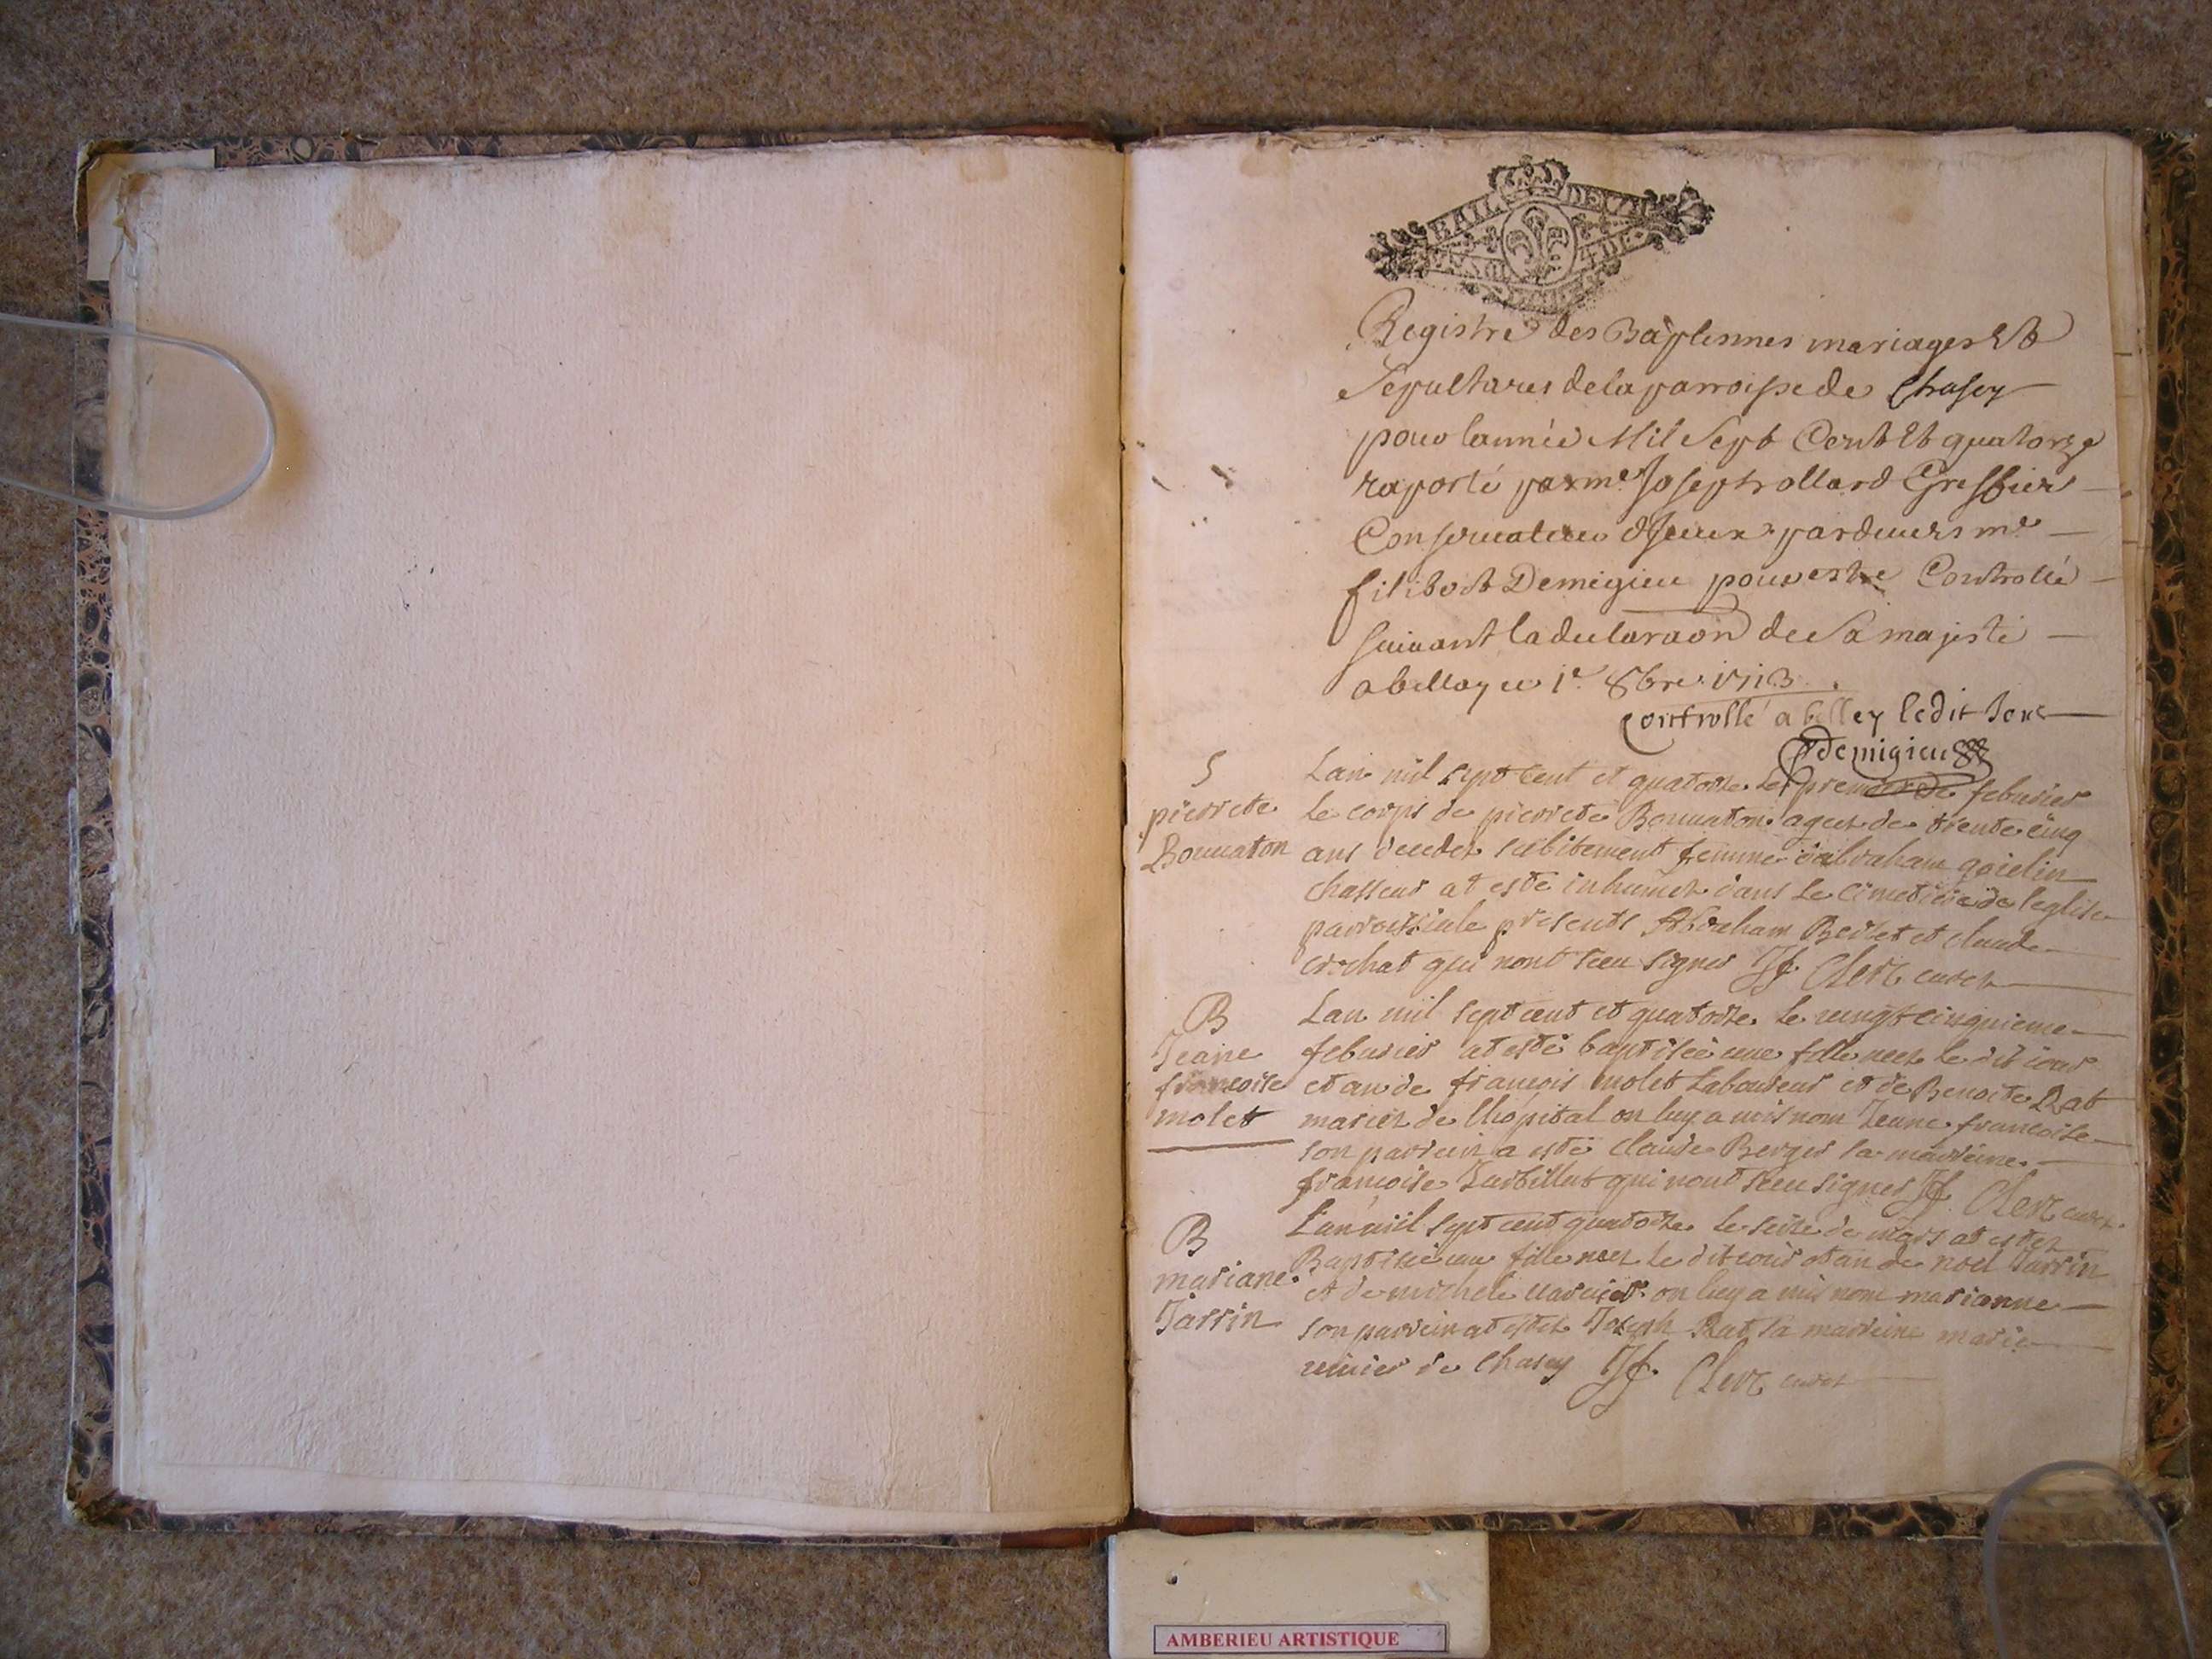 Registre des Baptesmes mariages Et
Sepultures de la parroisse de Chasey
pour lannée Mil Sept Cent Et quatorze
raporté par me Joseph rollard Greffier
Conservateur diceux pardevers me
filibert Demigieu pour estre Controllé
suivant la declaraon de Sa majesté
a belley ce 1e 8bre 1713
Controllé a belley ledit Jour
Demigieu
S
pierrete
Bouuaton
Lan mil sept cent et quatorze le premier de febvrier
le corps de pierrete Bouuaton agee de trente cinq
ans decedez subitement femme dabraham
chasseur at esté inhumez dans le cimetiere de leglise
parroissiale presents Abraham Berlet et claude
crochat qui nont sceu signer Clerc curez
B
Jeane
francoise
molet
Lan mil sept cent et quatorze le vingt cinquieme
febvrier at esté baptisée une fille neez le dit iour
et an de francois molet Laboureur et de Benoite Rat
mariez de lhopital on luy a mis nom Jeane francoise
son parrein a esté claude Berger la marreine
francoise qui nont sceu signer Clerc curez
B
mariane
Jarrin
Lan mil sept cent quatorze le seize de mars at estez
Baptisée une fille neez le dit iour et an de noel Jarrin
et de michele on luy a mis nom marianne
son parrein at estez Joseph Rat sa marreine marie
de Chasey Clerc curez
AMBERIEU ARTISTIQUE